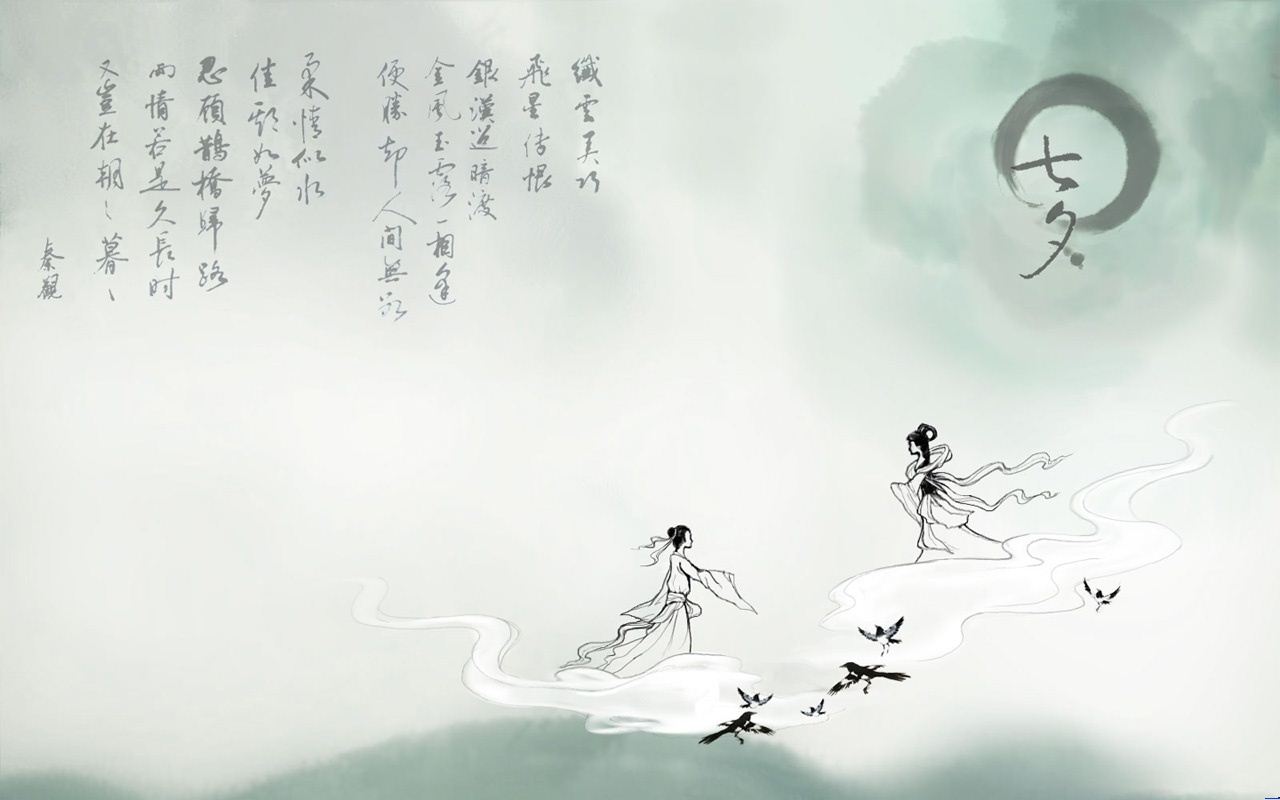 七夕
纖雲弄巧
飛星传恨
銀漢迢暗渡
金風玉露一相逢
便勝却人間無数
柔情似水
佳期如夢
忍顧鵲橋歸路
兩情若是久長时
又豈在朝々暮々
秦觀